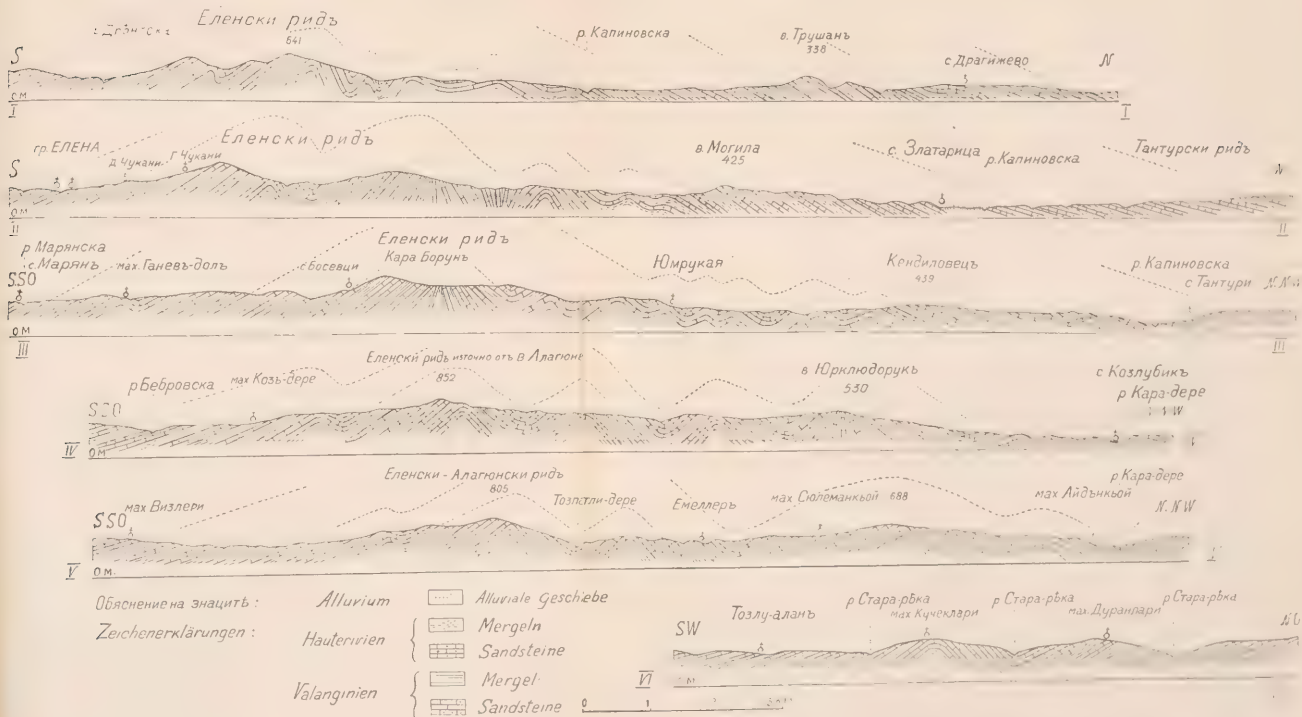 Еленски ридъ
641
р. Капиновска
в. Трушанъ
338
с. Драгижево
S N
О М
I I
гр. ЕЛЕНА
Д. Чукани
Г. Чукани
Еленски ридъ
в. Могила
425
с. Златарица
р. Капиновска
Тантурски ридъ
S N
О М
II II
р Марянска
с. Марянъ
мах. Ганевъ-долъ
с. Босевци
Еленски ридъ
Кара Борунъ
Юмрукая
Кендиловецъ
439
р. Капиновска
с Тантури
SSO N. N W
О М
III III
р Бебровска
мах Козь-дере
Еленски ридъ източно отъ В Алагюне
852
в Юрклюдорукъ
530
с Козлубикъ
р Кара-дере
SSO
О М
IV
мах Визлери
Еленски - Алагюнски ридъ
805
Емеллеръ
мах Сюлеманкьой 688
мах Айдънкьой
р Кара-дере
SSO N. N W
V О М.
Обяснение на знацитѣ :
Zeichenerklärungen :
Alluvium
Alluviale Geschiebe
Hauterivien
Mergeln
Sandsteine
Valanginien
Mergel
Sandsteine
0 1
Тозлу-аланъ
р Стара-рѣка
мах Кучеклари
р Стара-рѣка
р Стара-рѣка
SW
VI